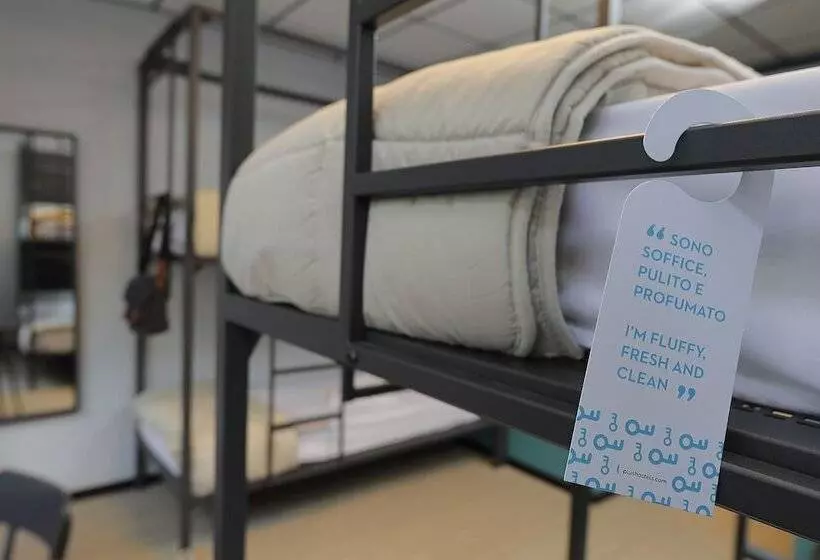 “ SONO
SOFFICE,
PULITO E
PROFUMATO
I'M FLUFFY,
FRESH AND
CLEAN ”
plushostels.com